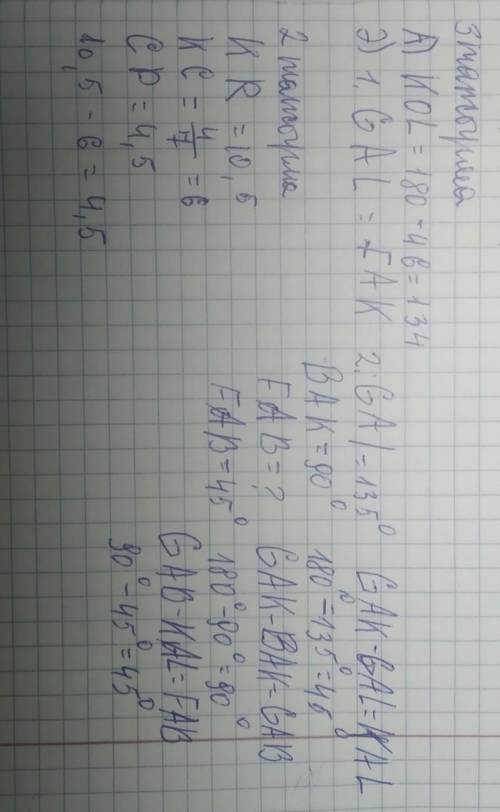 3 тапсырма
А) KOL = 180 - 46 = 134
Ә) 1. GAL = FAK
2. GAL = 135°
BAK = 90°
FAB = ?
FAB = 45°
GAK - GAL = KAL
180° - 135° = 45°
GAK - BAK = GAB
180° - 90° = 90°
GAB - KAL = FAB
90° - 45° = 45°
2 тапсырма
KR = 10,5
KC = 4/7 = 6
CP = 4,5
10,5 - 6 = 4,5